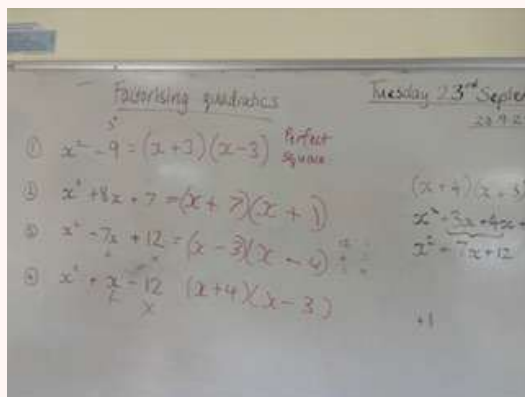 Factorising quadratics
Tuesday 23rd Septe
① x² - 9 = (x+3)(x-3) Perfect Square
② x² + 8x + 7 = (x + 7)(x + 1)
③ x² - 7x + 12 = (x - 3)(x - 4)
④ x² + x - 12 (x+4)(x-3)
(x+4)(x+3)
x² + 3x + 4x +
x² + 7x + 12
+1